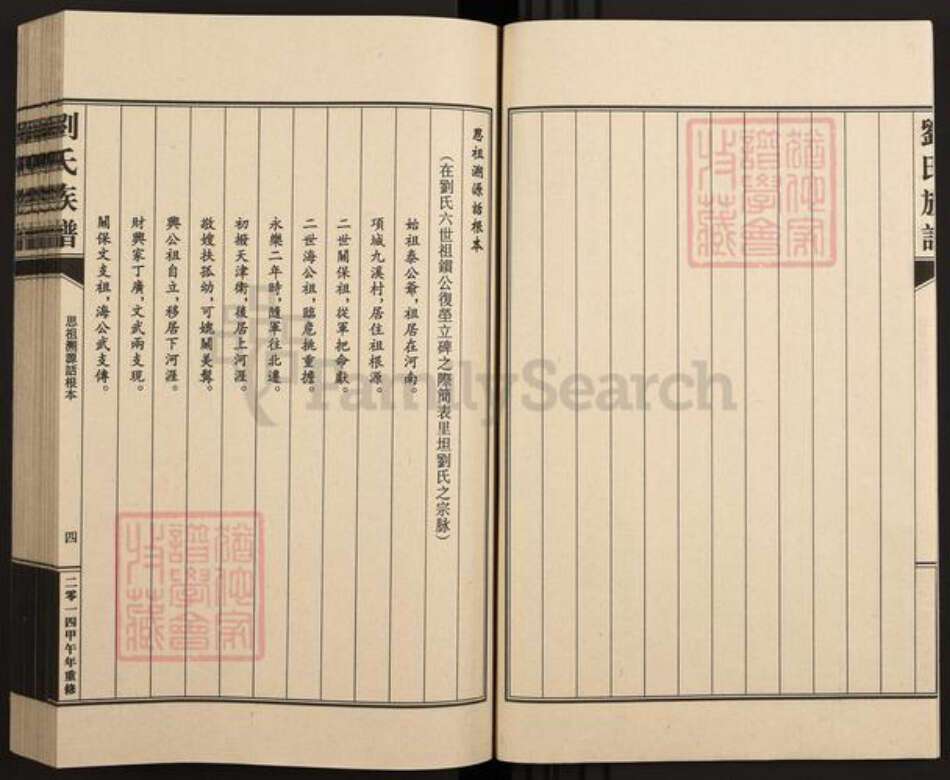 劉氏族譜
思祖溯源話根本
(在劉氏六世祖鎖公復塋立碑之際簡表里坦劉氏之宗脉)
始祖泰公爺,祖居在河南。
項城九溪村,居住祖根源。
二世關保祖,從軍把命獻。
二世海公祖,臨危挑重擔。
永樂二年時,隨軍往北遷。
初撥天津衛,後居上河涯。
敬嫂扶孤幼,可媲關美髯。
興公祖自立,移居下河涯。
財興家丁廣,文武兩支現。
關保文支祖,海公武支傳。
劉氏族譜
思祖溯源話根本
四
二零一四甲午年重修
譜學會
收藏
譜學會
收藏
FamilySearch